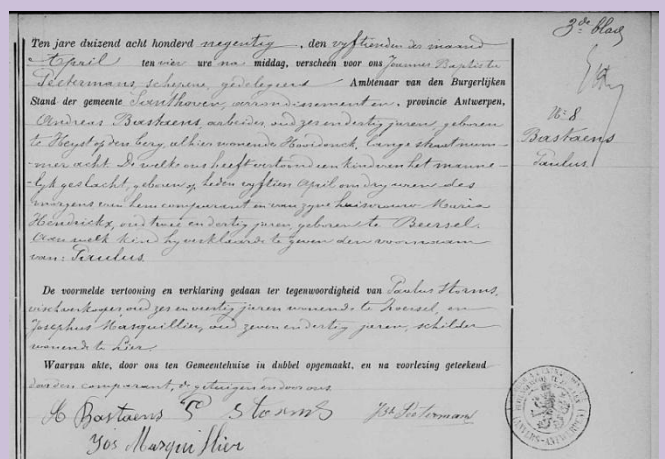 3de blad
Ten jare duizend acht honderd negentig, den vyftienden der maand
April ten vier ure na middag, verscheen voor ons Joannes Baptiste
Peetermans, schepene, gedelegeerd Ambtenaar van den Burgerlijken
Stand der gemeente Santhoven, arrondissement en provincie Antwerpen,
Andreas Bastaens, arbeider, oud zes en dertig jaren, geboren
te Heyst op den berg, alhier wonende Hoordonck, lange straat num-
mer acht. De welke ons heeft vertoond een kind van het manne-
lyk geslacht, geboren op heden vyftien April om dry uren des
morgens van hem comparant en van zyne huisvrouw Maria
Hendrickx, oud twee en dertig jaren, geboren te Beersel.
Aan welk kind hy verklaarde te geven den voornaam
van: Paulus.
De voormelde vertooning en verklaring gedaan ter tegenwoordigheid van Paulus Storms,
oud zes en veertig jaren wonende te Loersel, en
Josephus Masquillier, oud zeven en dertig jaren, schilder
wonende te Lier.
Waarvan akte, door ons ten Gemeentehuize in dubbel opgemaakt, en na voorlezing geteekend
door den comparant, de getuigen en door ons.
A Bastaens P Storms Jbt Peeterman
Jos Masquillier
No 8
Bastaens
Paulus